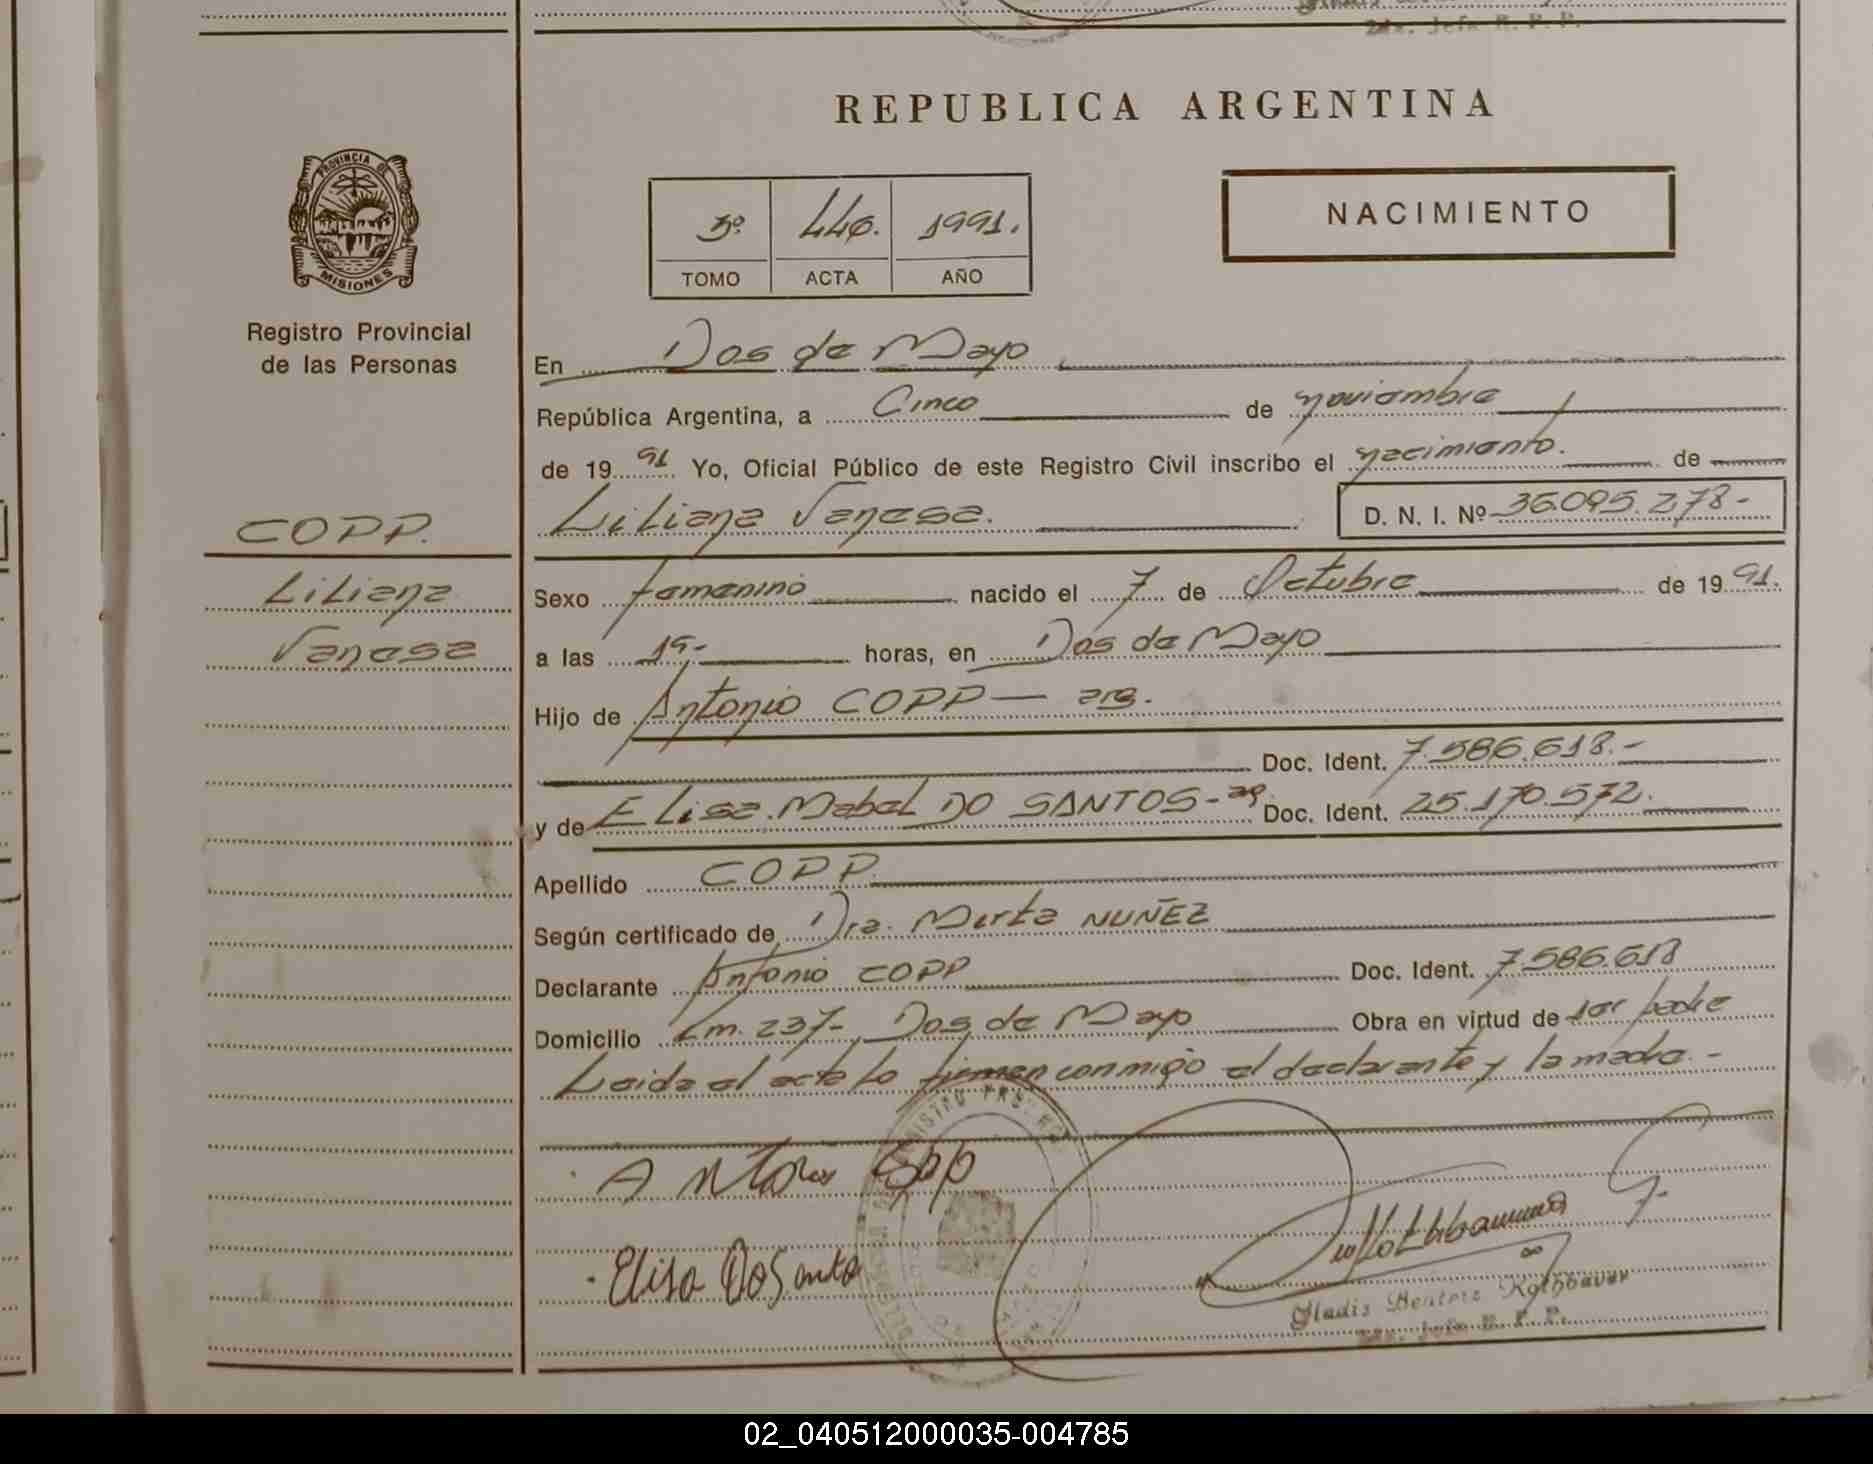 2da. Jefa R. P. P.
REPUBLICA ARGENTINA
PROVINCIA DE
MISIONES
Registro Provincial
de las Personas
3º. 446. 1991.
TOMO ACTA AÑO
NACIMIENTO
En Dos de Mayo
República Argentina, a Cinco de noviembre
de 19 91 Yo, Oficial Público de este Registro Civil inscribo el nacimiento. de
Liliana Vanesa. D. N. I. Nº 36.095.278-
COPP.
Liliana
Vanesa
Sexo femenino nacido el 7 de Octubre de 19 91.
a las 19- horas, en Dos de Mayo
Hijo de Antonio COPP — arg.
Doc. Ident. 7.586.618.-
y de Elisa Mabel DO SANTOS- Doc. Ident. 25.170.572.
Apellido COPP
Según certificado de Dra. Mirta NUÑEZ
Declarante Antonio COPP Doc. Ident. 7.586.618
Domicilio Km. 237- Dos de Mayo Obra en virtud de ser padre
Leida el acta lo firman conmigo el declarante y la madre.-
Antonio Copp
Elisa Do Santo
Gladis Beatriz Rothbauer
2da. Jefa R. P. P.
02_040512000035-004785